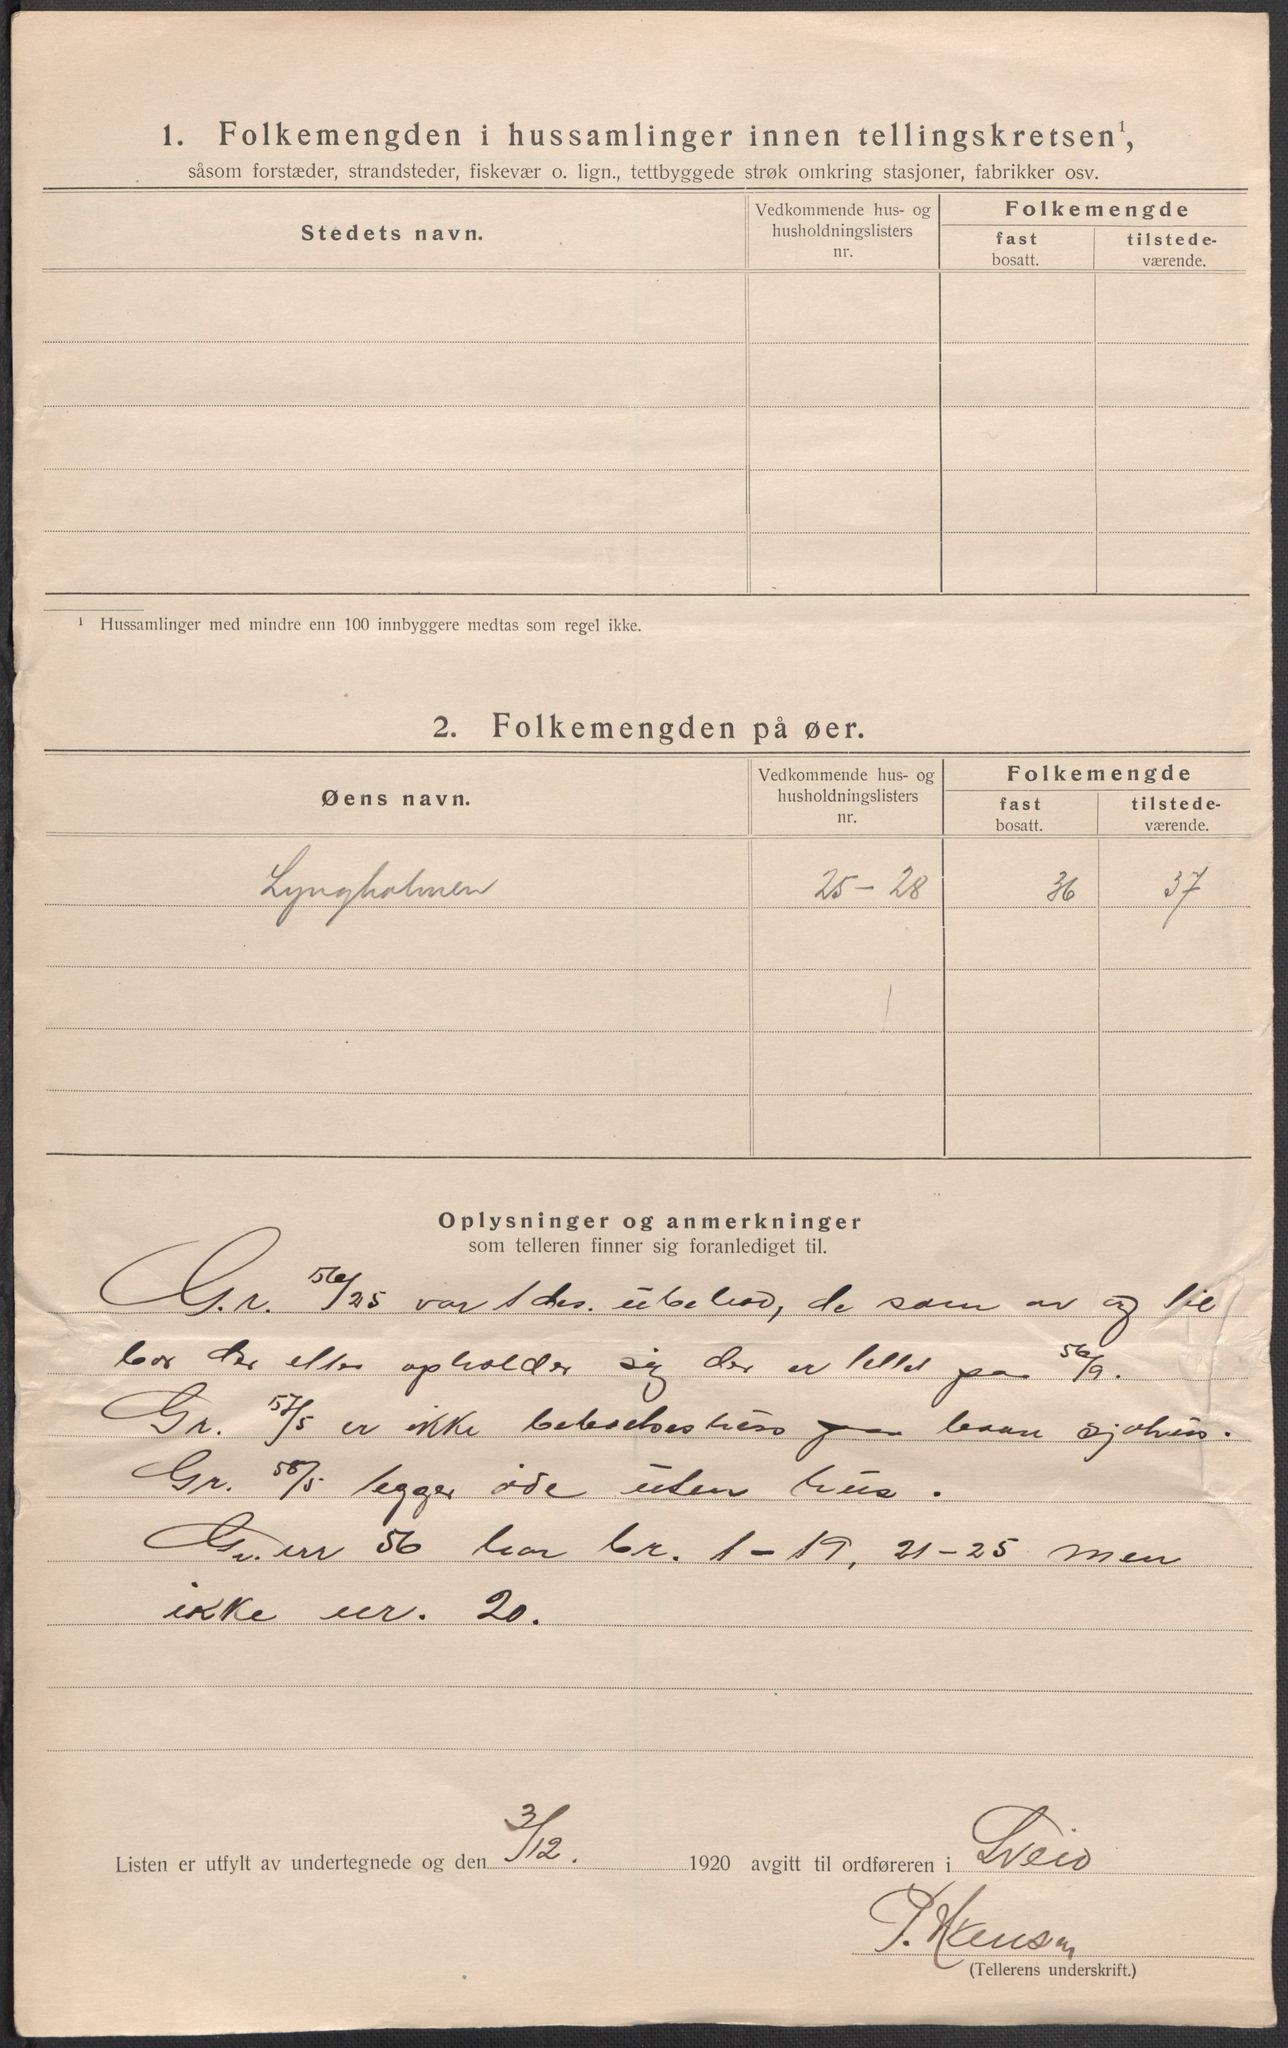 1. Folkemengden i hussamlinger innen tellingskretsen¹,
såsom forstæder, strandsteder, fiskevær o. lign., tettbyggede strøk omkring stasjoner, fabrikker osv.
Stedets navn.
Vedkommende hus- og
husholdningslisters
nr.
Folkemengde
fast
bosatt.
tilstede-
værende.
¹ Hussamlinger med mindre enn 100 innbyggere medtas som regel ikke.
2. Folkemengden på øer.
Øens navn.
Vedkommende hus- og
husholdningslisters
nr.
Folkemengde
fast
bosatt.
tilstede-
værende.
Lyngholmen 25 - 28 36 37
Oplysninger og anmerkninger
som telleren finner sig foranlediget til.
G.r. 56/25 var 1 des. ubebod, de som av og til
bor der eller opholder sig der er tellet paa 56/9.
Gr. 57/5 er ikke beboelseshus baare sjøhus.
Gr. 58/5 legger øde uten hus.
G. nr 56 har br. 1-19, 21-25 men
ikke nr. 20.
Listen er utfylt av undertegnede og den 3/12. 1920 avgitt til ordføreren i Sveio
(Tellerens underskrift.)